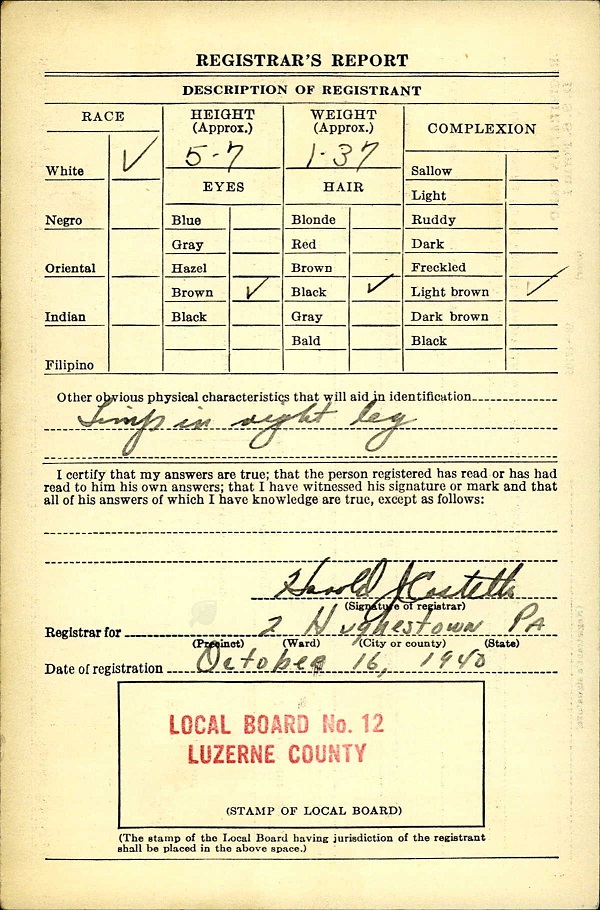 REGISTRAR'S REPORT
DESCRIPTION OF REGISTRANT
RACE
HEIGHT
(Approx.)
WEIGHT
(Approx.)
COMPLEXION
5-7
1-37
White ✓
Sallow
EYES
HAIR
Light
Negro
Blue
Blonde
Ruddy
Gray
Red
Dark
Oriental
Hazel
Brown
Freckled
Brown ✓
Black ✓
Light brown ✓
Indian
Black
Gray
Dark brown
Bald
Black
Filipino
Other obvious physical characteristics that will aid in identification
Limp in right leg
I certify that my answers are true; that the person registered has read or has had
read to him his own answers; that I have witnessed his signature or mark and that
all of his answers of which I have knowledge are true, except as follows:
Harold J Costello
(Signature of registrar)
Registrar for 2 Hughestown PA
(Precinct) (Ward) (City or county) (State)
Date of registration October 16, 1940
LOCAL BOARD No. 12
LUZERNE COUNTY
(STAMP OF LOCAL BOARD)
(The stamp of the Local Board having jurisdiction of the registrant
shall be placed in the above space.)